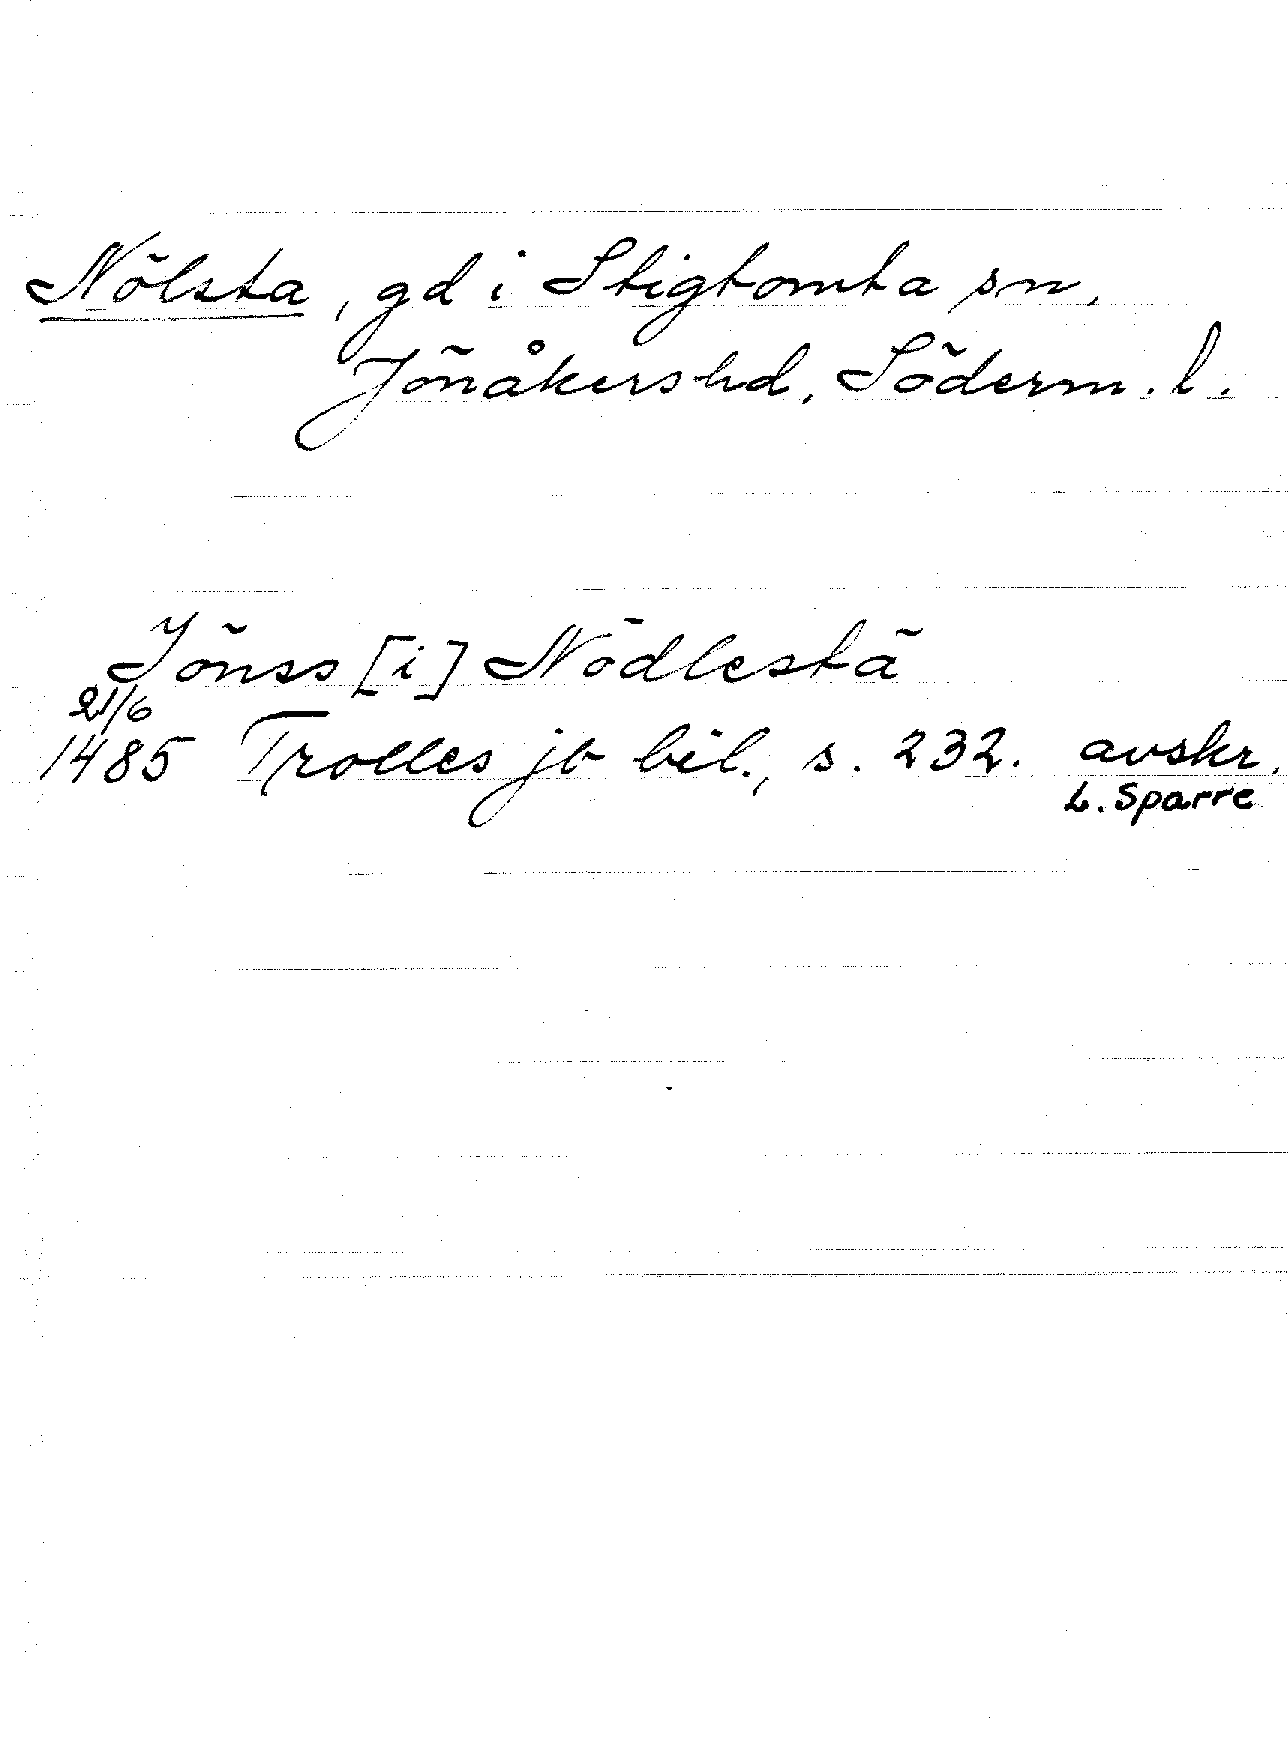 Nölsta, gd i Stigtomta sn,
Jönåkers hd, Söderm. l.
Jönss [i] Nödlestä
21/6
1485 Trolles jb bil., s. 232. avskr.
L. Sparre